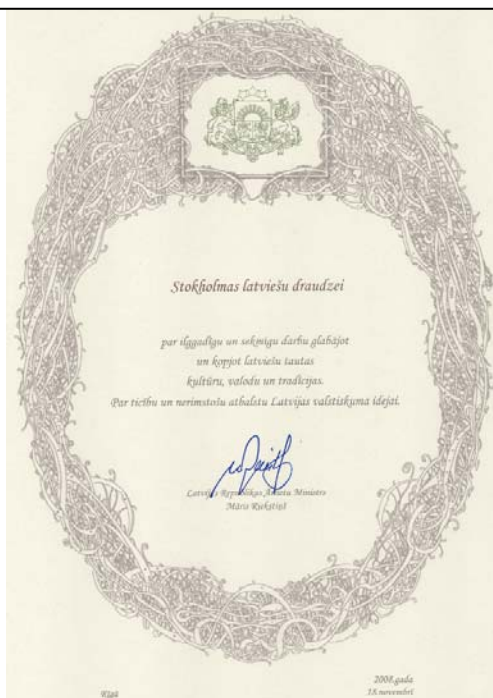 Stokholmas latviešu draudzei
par ilggadīgu un sekmīgu darbu glabājot
un kopjot latviešu tautas
kultūru, valodu un tradīcijas.
Par ticību un nerimstošu atbalstu Latvijas valstiskuma idejai.
Latvijas Republikas Ārlietu Ministrs
Māris Riekstiņš
2008.gada
Rīgā 18.novembrī